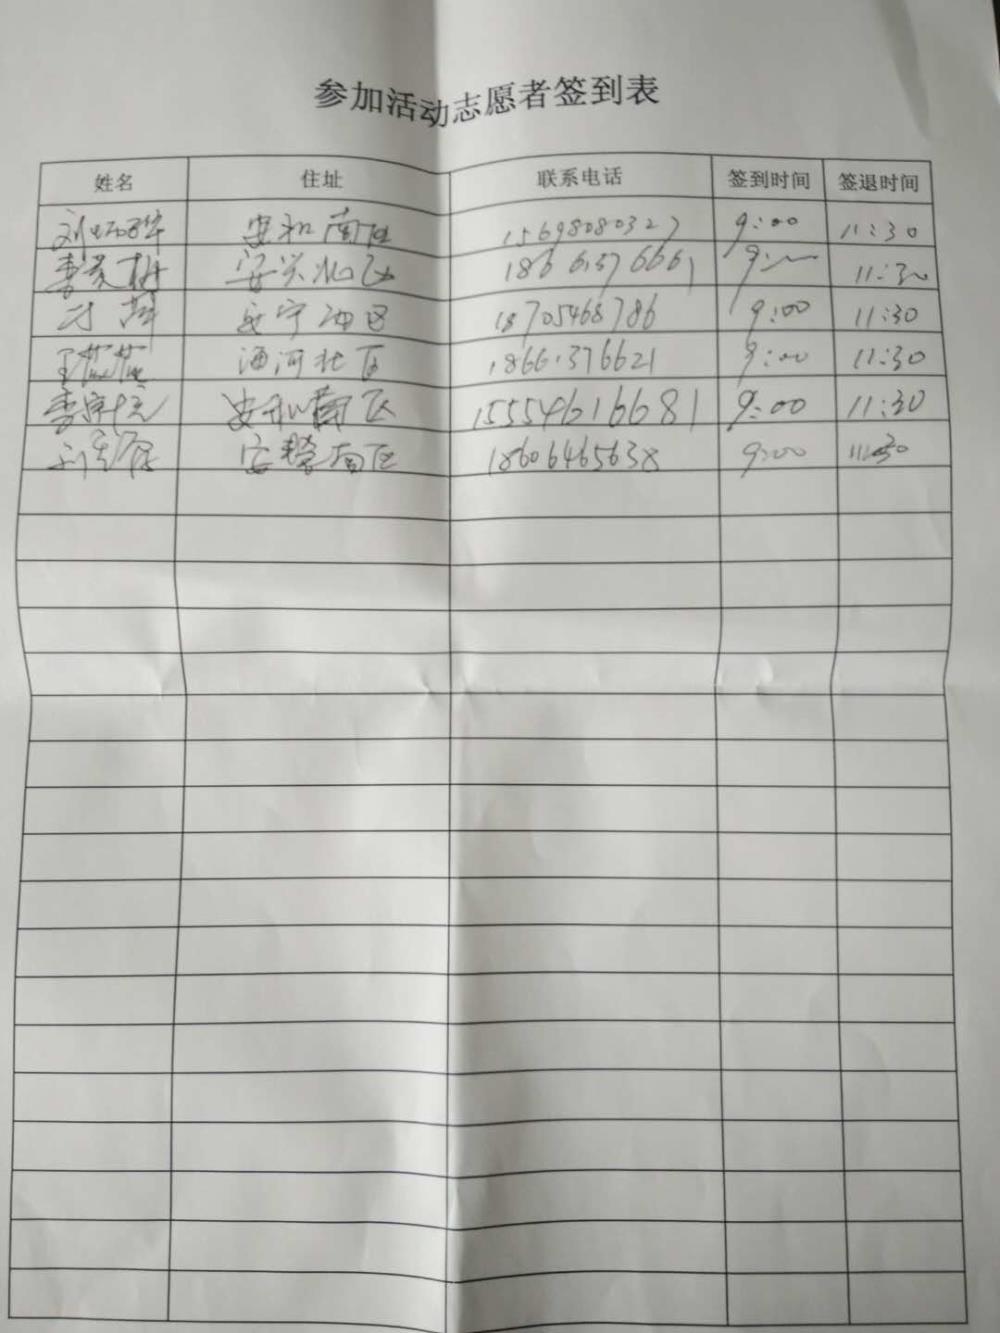 参加活动志愿者签到表
姓名 住址 联系电话 签到时间 签退时间
安和南区 15698080327 9:00 11:30
李爱梅 安兴北区 18661376661 9:00 11:30
于萍 安宁油区 18705468786 9:00 11:30
王莅莅 酒河北区 18661376621 9:00 11:30
安和南区 15554616681 9:00 11:30
安馨南区 18606465638 9:00 11:30